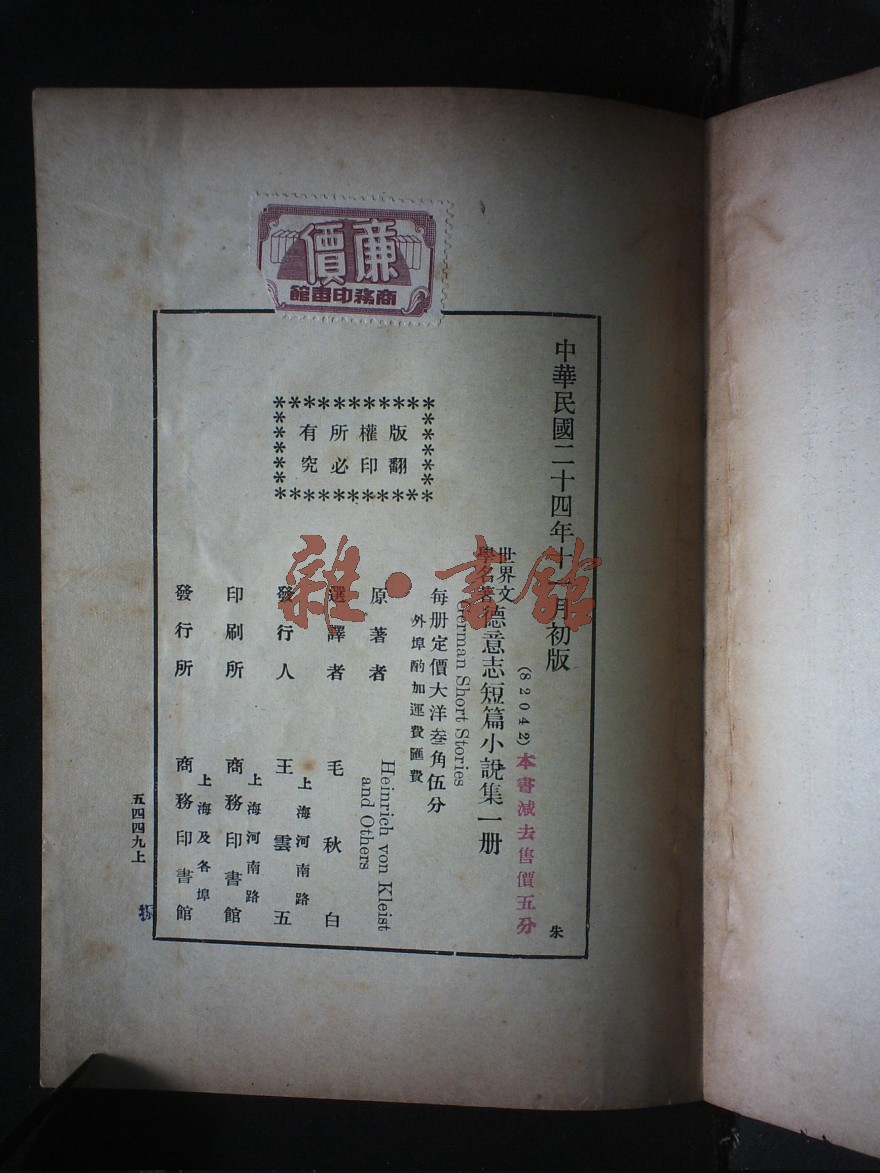 廉價
商務印書館
中華民國二十四年十一月初版
朱
(82042)
本書減去售價五分
世界文學名著 德意志短篇小說集一冊
German Short Stories
每冊定價大洋叁角伍分
外埠酌加運費匯費
版權所有
翻印必究
原著者 Heinrich von Kleist
and Others
選譯者 毛秋白
發行人 王雲五
上海河南路
印刷所 商務印書館
上海河南路
發行所 商務印書館
上海及各埠
五四四九上
雜·書館